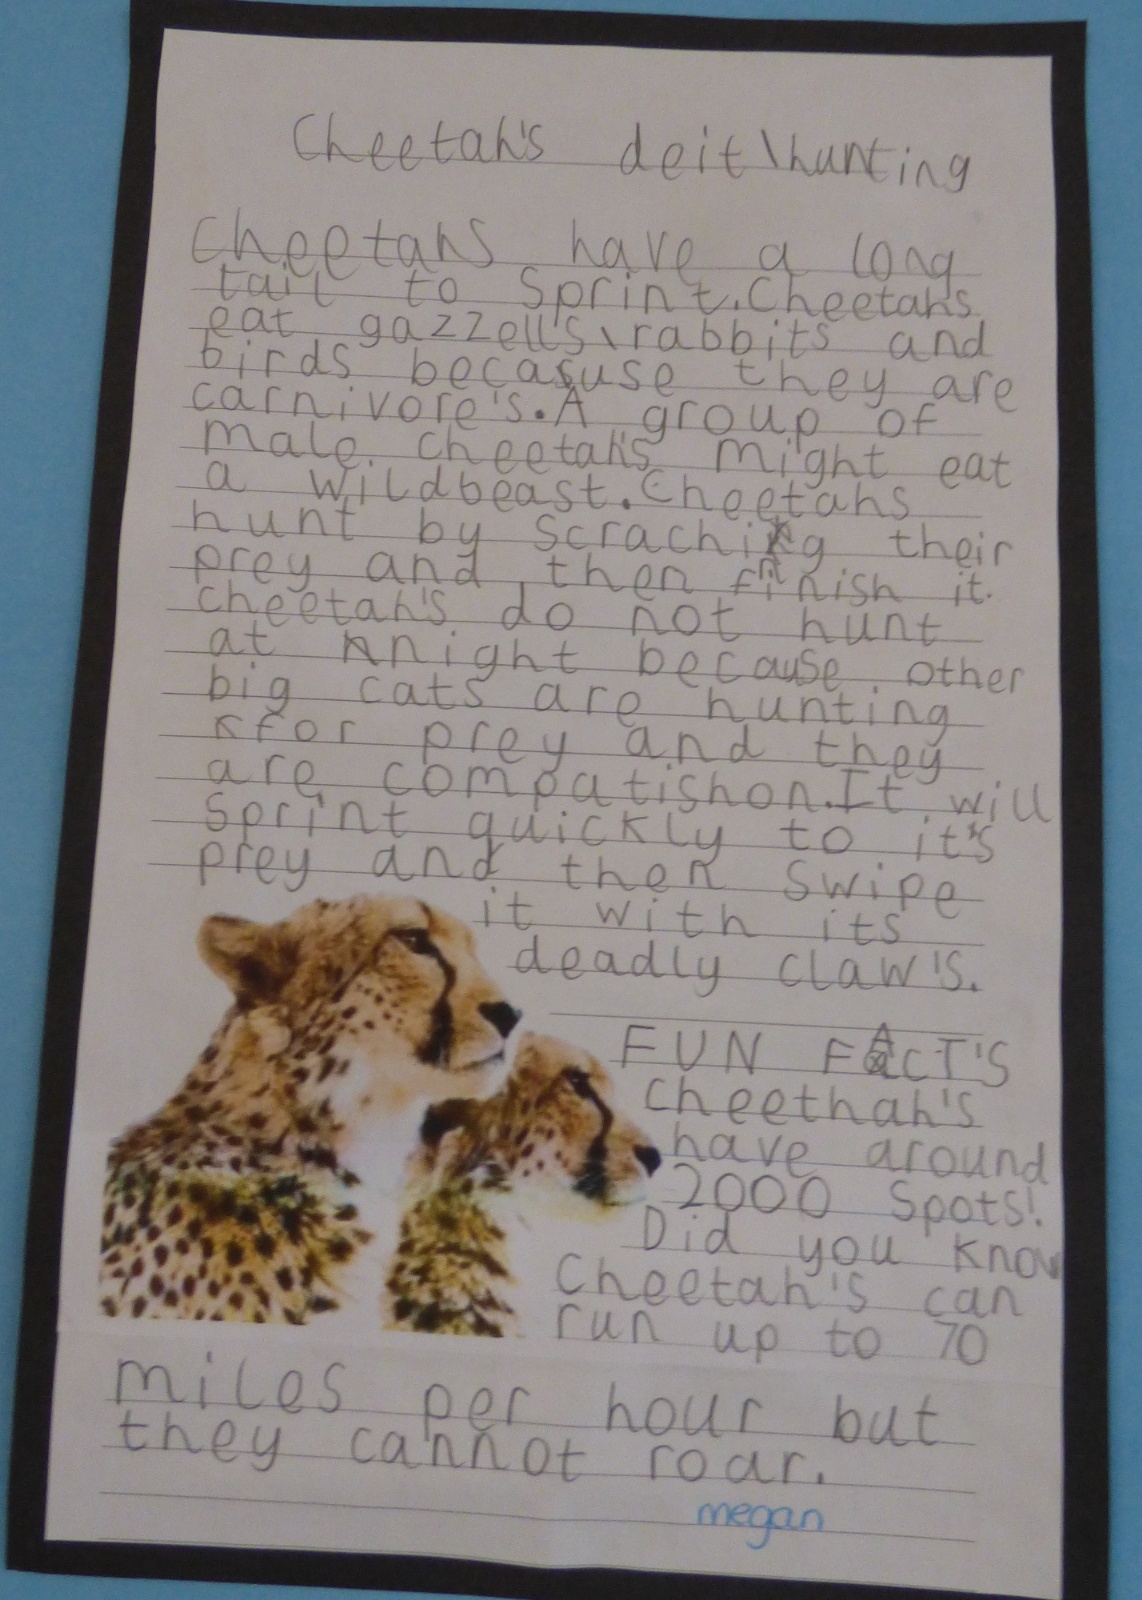 Cheetah's deit\hunting
Cheetahs have a long
tail to Sprint.Cheetahs
eat gazzell's\rabbits and
birds becasuse they are
carnivore's.A group of
male cheetah's might eat
a wildbeast.Cheetahs
hunt by scraching their
prey and then finish it.
cheetah's do not hunt
at night because other
big cats are hunting
for prey and they
are compatishon.It will
Sprint quickly to it's
prey and then swipe
it with its
deadly claw's.
FUN FAcT'S
cheethah's
have around
2000 Spots!
Did you know
Cheetah's can
run up to 70
miles per hour but
they cannot roar.
megan